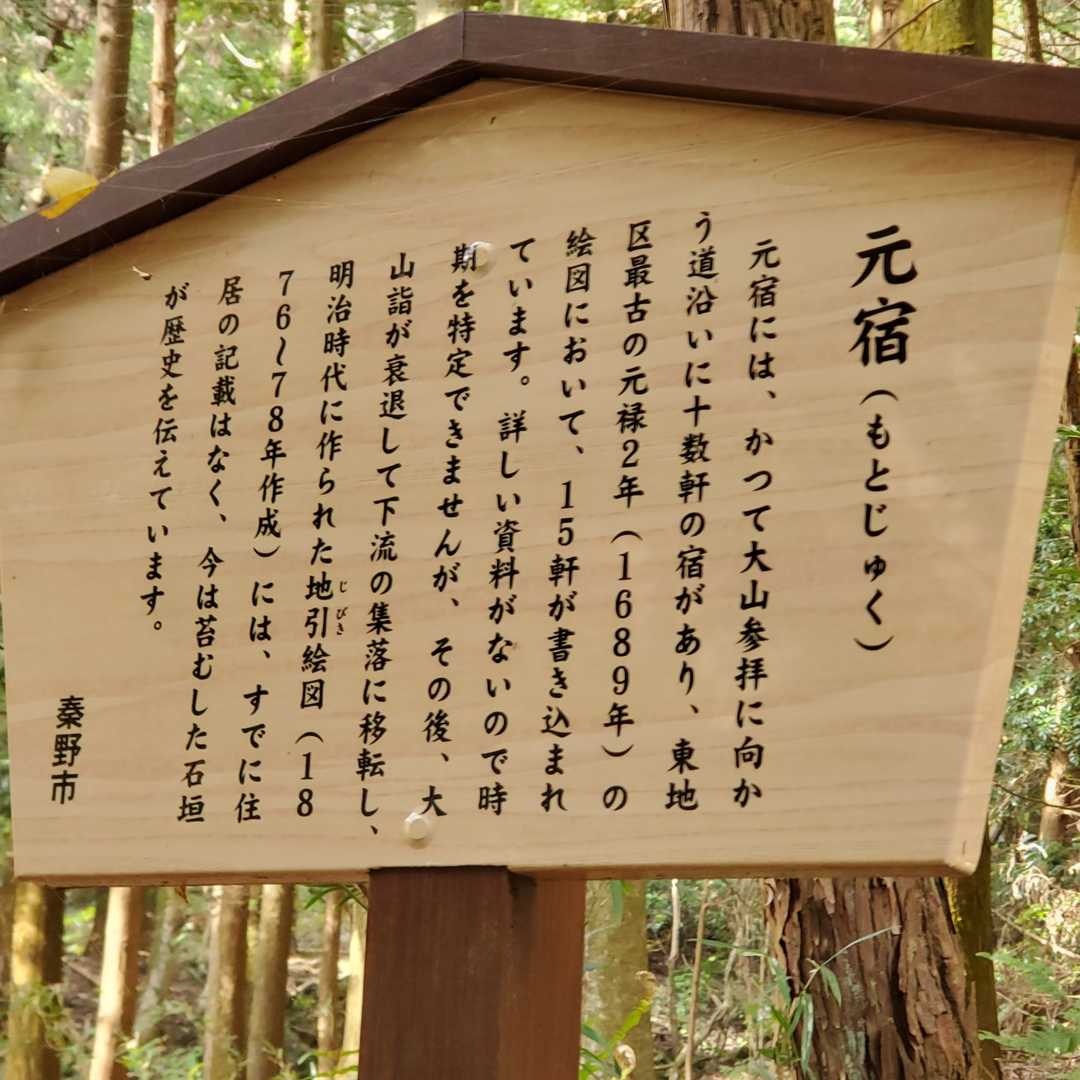 元宿（もとじゅく）
元宿には、かつて大山参拝に向か
う道沿いに十数軒の宿があり、東地
区最古の元禄2年（1689年）の
絵図において、15軒が書き込まれ
ています。詳しい資料がないので時
期を特定できませんが、その後、大
山詣が衰退して下流の集落に移転し、
明治時代に作られた地引絵図（18
じびき
76〜78年作成）には、すでに住
居の記載はなく、今は苔むした石垣
が歴史を伝えています。
秦野市